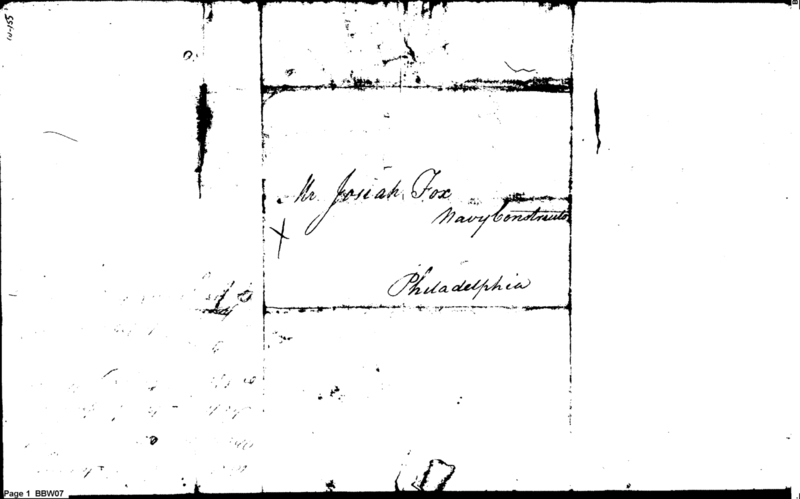 Mr Josiah Fox
Navy Constructor
Philadelphia
Page 1 BBW07